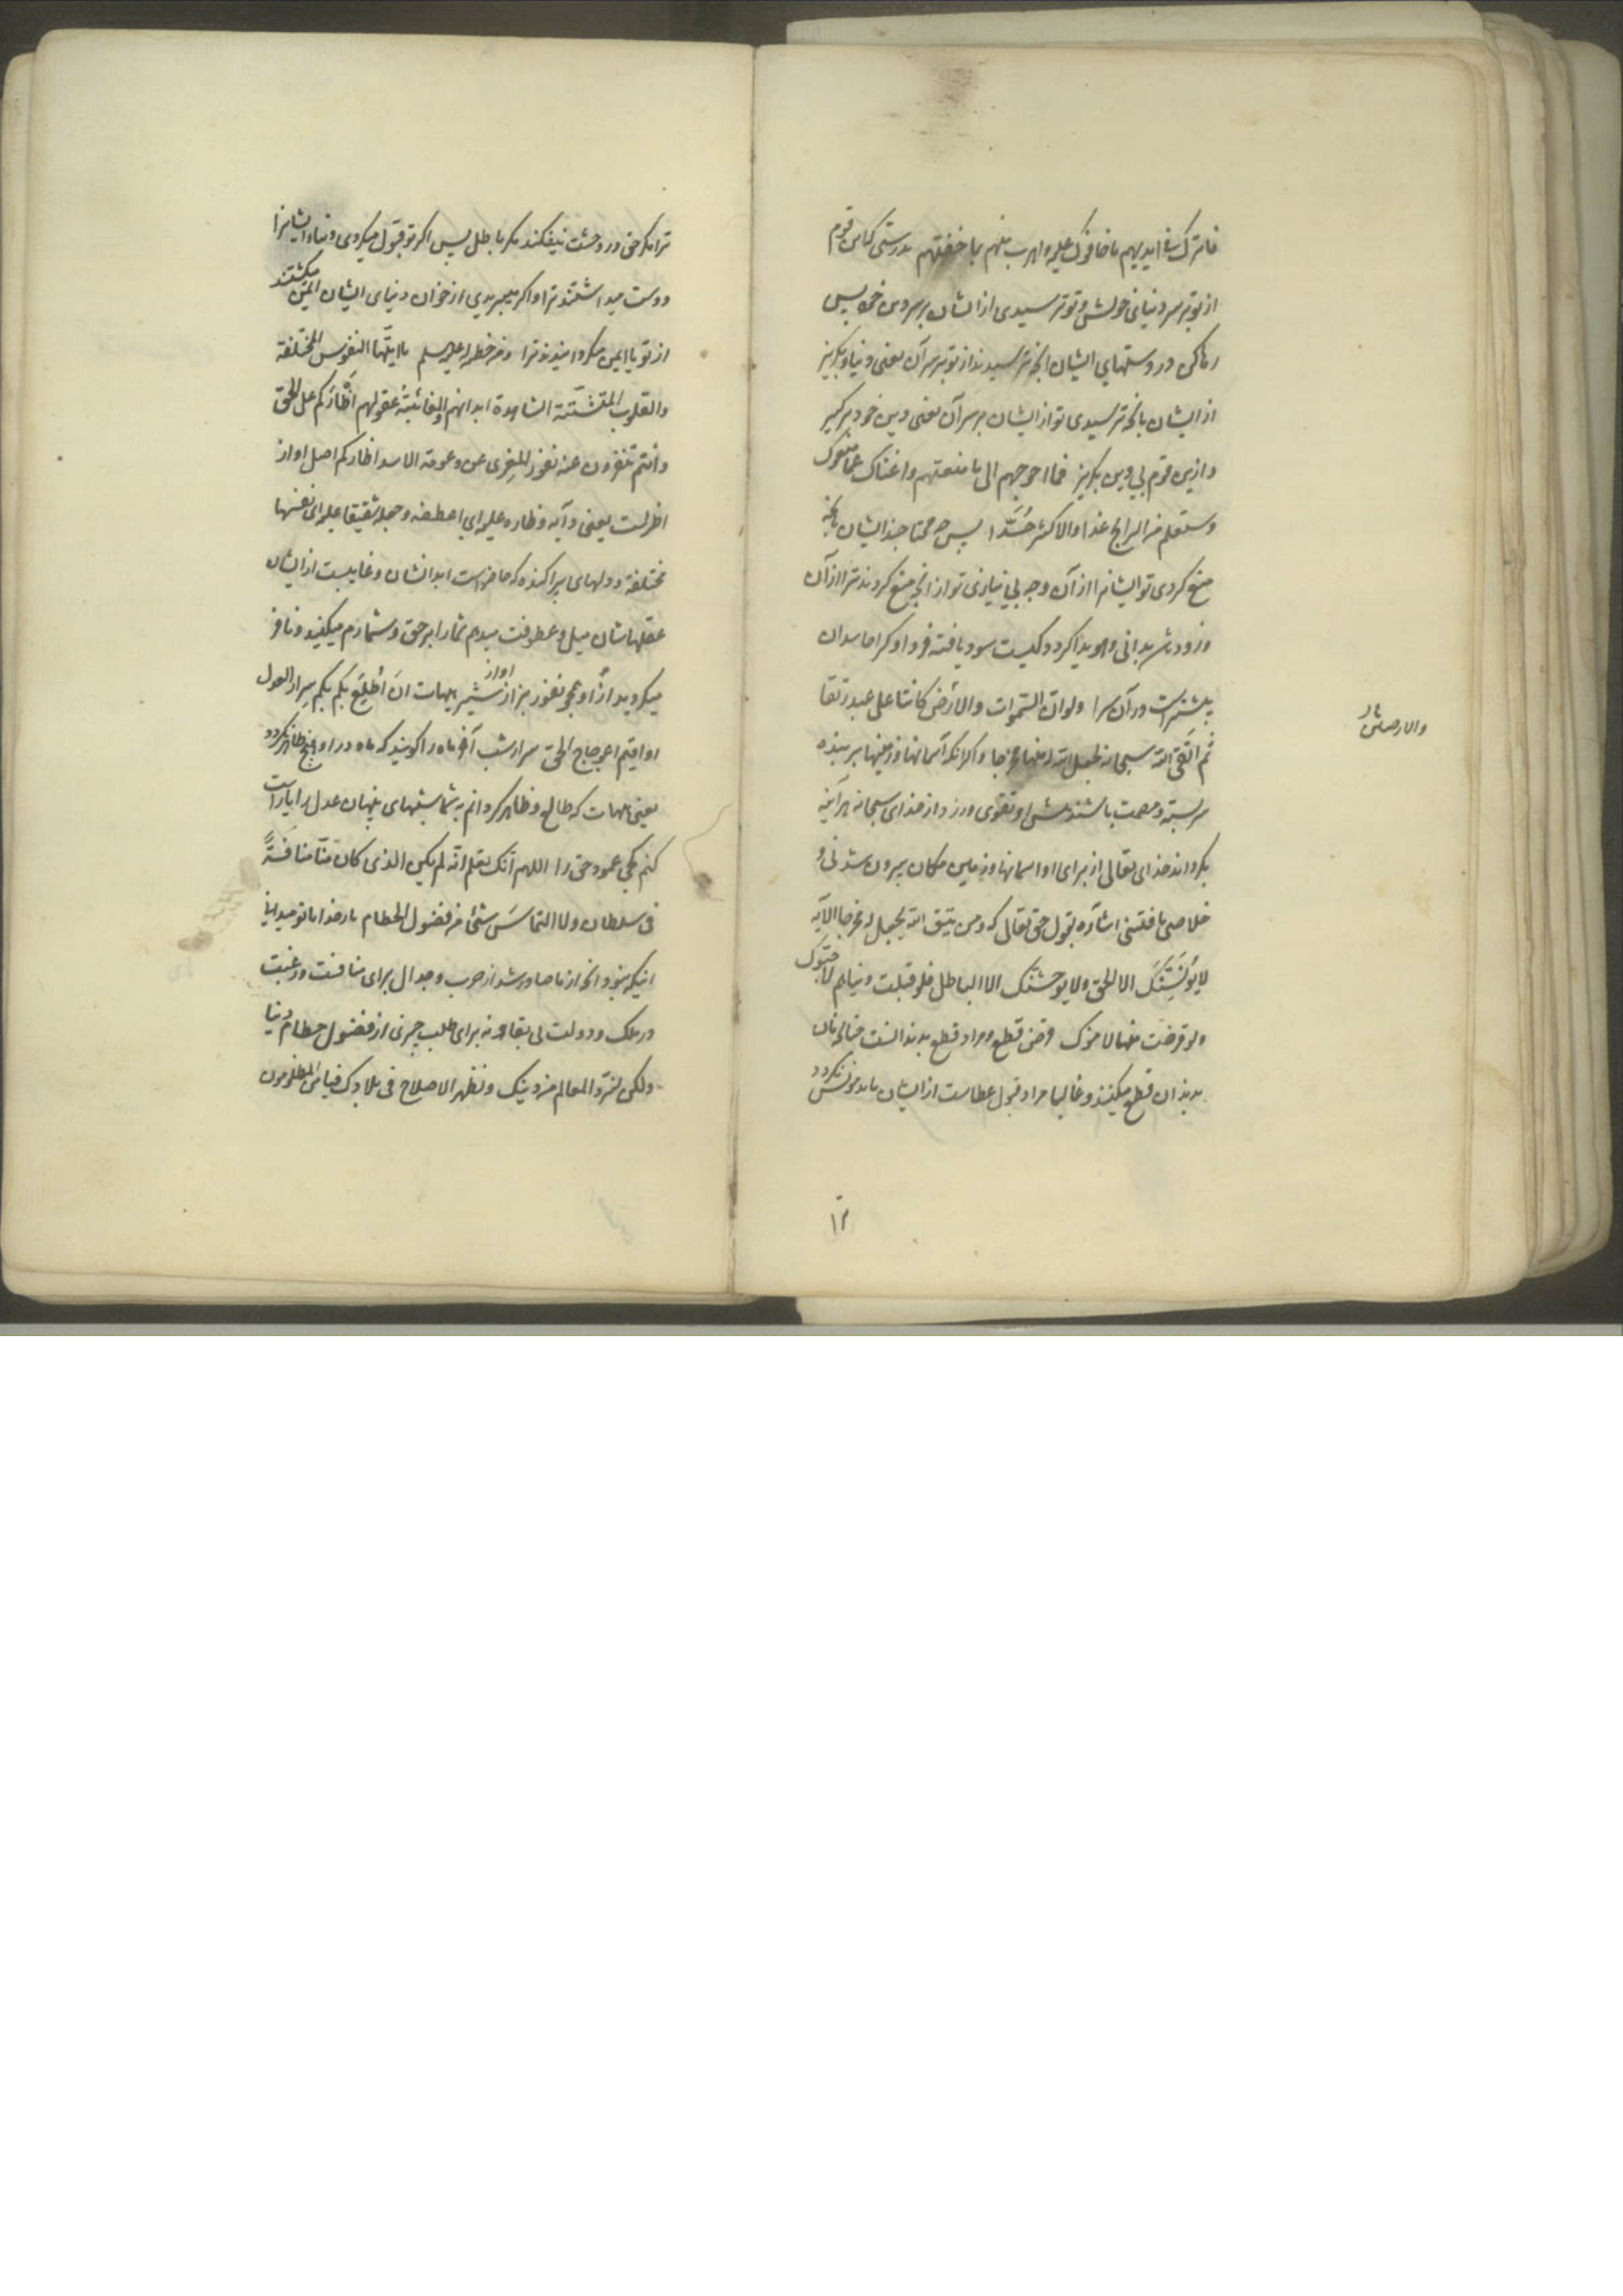 فاترک فی ایدیهم ما خافوک علیه و اهرب منهم بما خفتهم بدرستی که این قوم
از تو بر سر دنیای خویش و تو ترسیدی از ایشان بر سر دین خود پس
رها کن در دستهای ایشان آنچه ترسیدند از تو بر سر آن یعنی دنیا و بگریز
از ایشان بآنچه ترسیدی تو از ایشان بر سر آن یعنی دین خود بر گیر
و ازین قوم بی دین بگریز فما احوجهم الی ما منعتهم و اغناک عما منعوک
و ستعلم من الرابح غدا و الاکثر حُسَّدا پس چه محتاجند ایشان بآنچه
منع کردی تو ایشانرا از آن و چه بی نیازی تو از آنچه منع کردند ترا از آن
و زود باشد بدانی و هویدا گردد کیست سود یافته فردا و کرا حاسدان
بیشتر است در آن سرا ولو ان السموات والارض کانتا علی عبد رتقا
ثم اتقی الله سبحانه لجعل الله له منها مخرجا و اگر آنکه آسمانها و زمینها بر بنده
سربسته و مصمت باشند پس او تقوی ورزد از خدای سبحانه هر آینه
بگرداند خدای تعالی از برای او از آسمانها و زمین مکان بیرون شدنی و
خلاصی یافتنی اشاره بقول حق تعالی که ومن یتق الله یجعل له مخرجا الآیه
لا یؤنسنّک الا الحق ولا یوحشنّک الا الباطل فلو قبلت دنیاهم لاحبوک
ولو قرضت منها لامنوک قرض قطع و مراد قطع بدندانست چنانچه نان
بدندان قطع میکنند و غالبا مراد قبول عطاست از ایشان باید مونس نگردد
والارضین
ترا مگر حق و در وحشت نیفکند مگر باطل پس اگر تو قبول میکردی دنیاء ایشانرا
دوست میداشتند ترا و اگر میبریدی از خوان دنیای ایشان ایمن میگشتند
از تو یا ایمن میگردانیدند ترا ومن خطبه له علیه السلم یا ایتها النفوس المختلفة
والقلوب المتشتتة الشاهدة ابدانهم والغائبة عقولهم اظأرکم علی الحق
وانتم تنفرون عنه نفور المعزی عن وعوعة الاسد اظارکم اصل او از
اظارست یعنی دایه و ظاره علیه ای اعطفه و جعله شفیقا علیه ای نفسها
مختلفه و دلهای پراکنده که حاضر است ابدانشان و غایبست از ایشان
عقلهاشان میل و عطوفت میدهم شما را بر حق و شما رم میکنید و نافر
میگردید از او همچو نفور بز از آواز شیر هیهات ان اُطلِعَ بکم سرار العدل
او اقیم اعوجاج الحق سرار شب آخر ماه را گویند که ماه در او هیچ ظاهر نگردد
یعنی هیهات که طالع و ظاهر گردانم به شما شبهای پنهان عدل را یا راست
کنم کجی عمود حق را اللهم انک تعلم انه لم یکن الذی کان منا منافسةً
فی سلطان ولا التماسَ شئ من فضول الحطام بار خدایا تو میدانی
اینکه نبود آنچه از ما صادر شد از حرب و جدال برای منافست و رغبت
در ملک و دولت بی بقا و نه برای طلب چیزی از فضول حطام دنیا
ولکن لنرد المعالم من دینک و نظهر الاصلاح فی بلادک فیأمن المظلومون